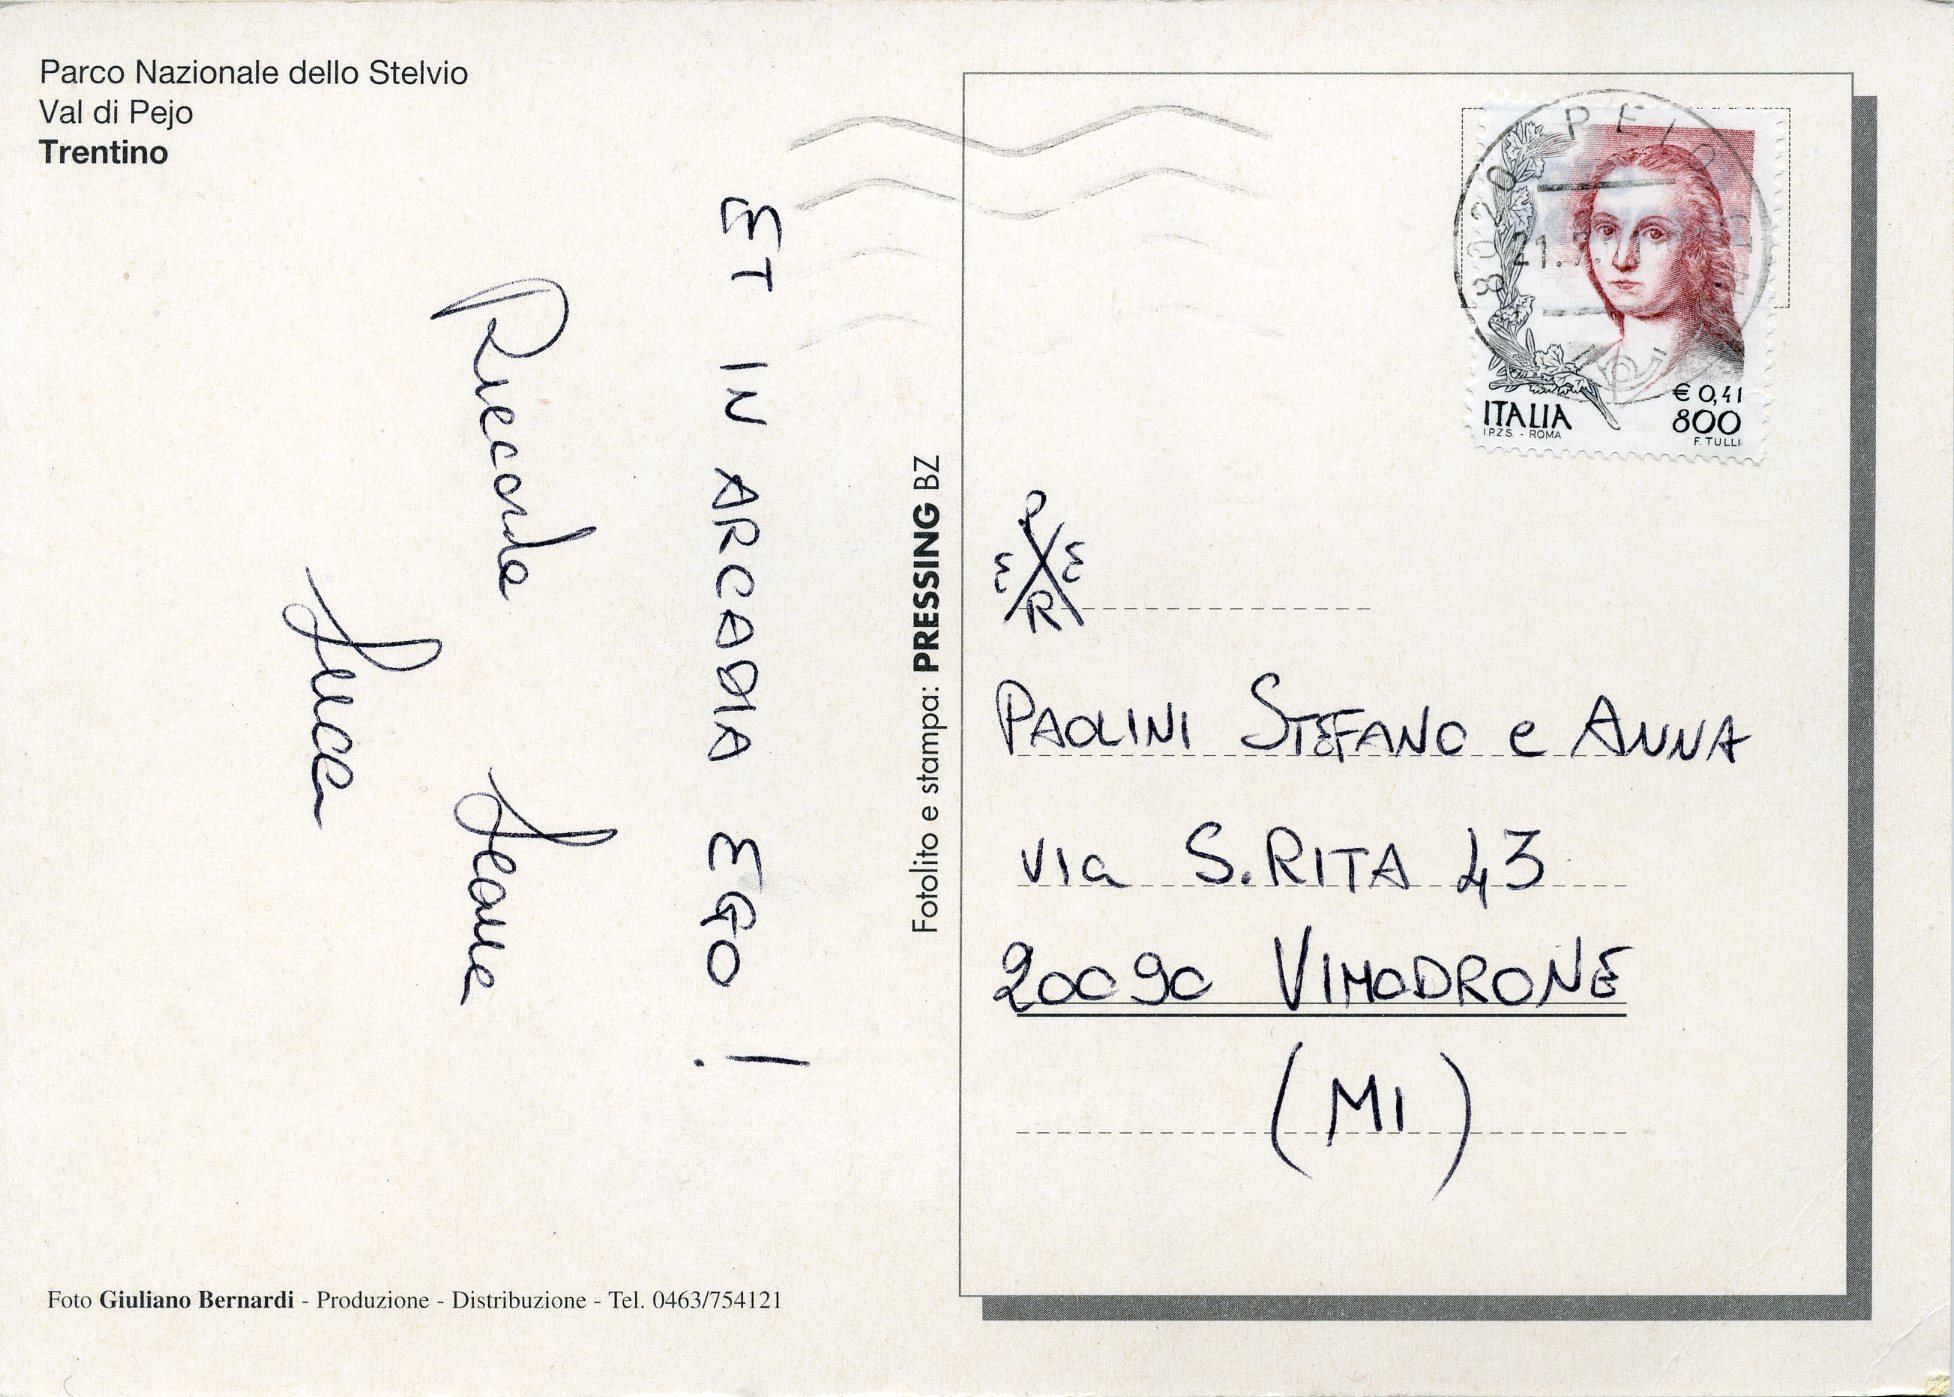 Parco Nazionale dello Stelvio
Val di Pejo
Trentino
ET IN ARCADIA EGO!
Riccardo
Leone
Luca
Foto Giuliano Bernardi - Produzione - Distribuzione - Tel. 0463/754121
Fotolito e stampa: PRESSING BZ
38020 PEIO
21.
€ 0,41
800
ITALIA
I.P.Z.S. - ROMA
F. TULLI
P
E E
R
PAOLINI STEFANO e ANNA
VIa S.RITA 43
20090 VIMODRONE
(MI)